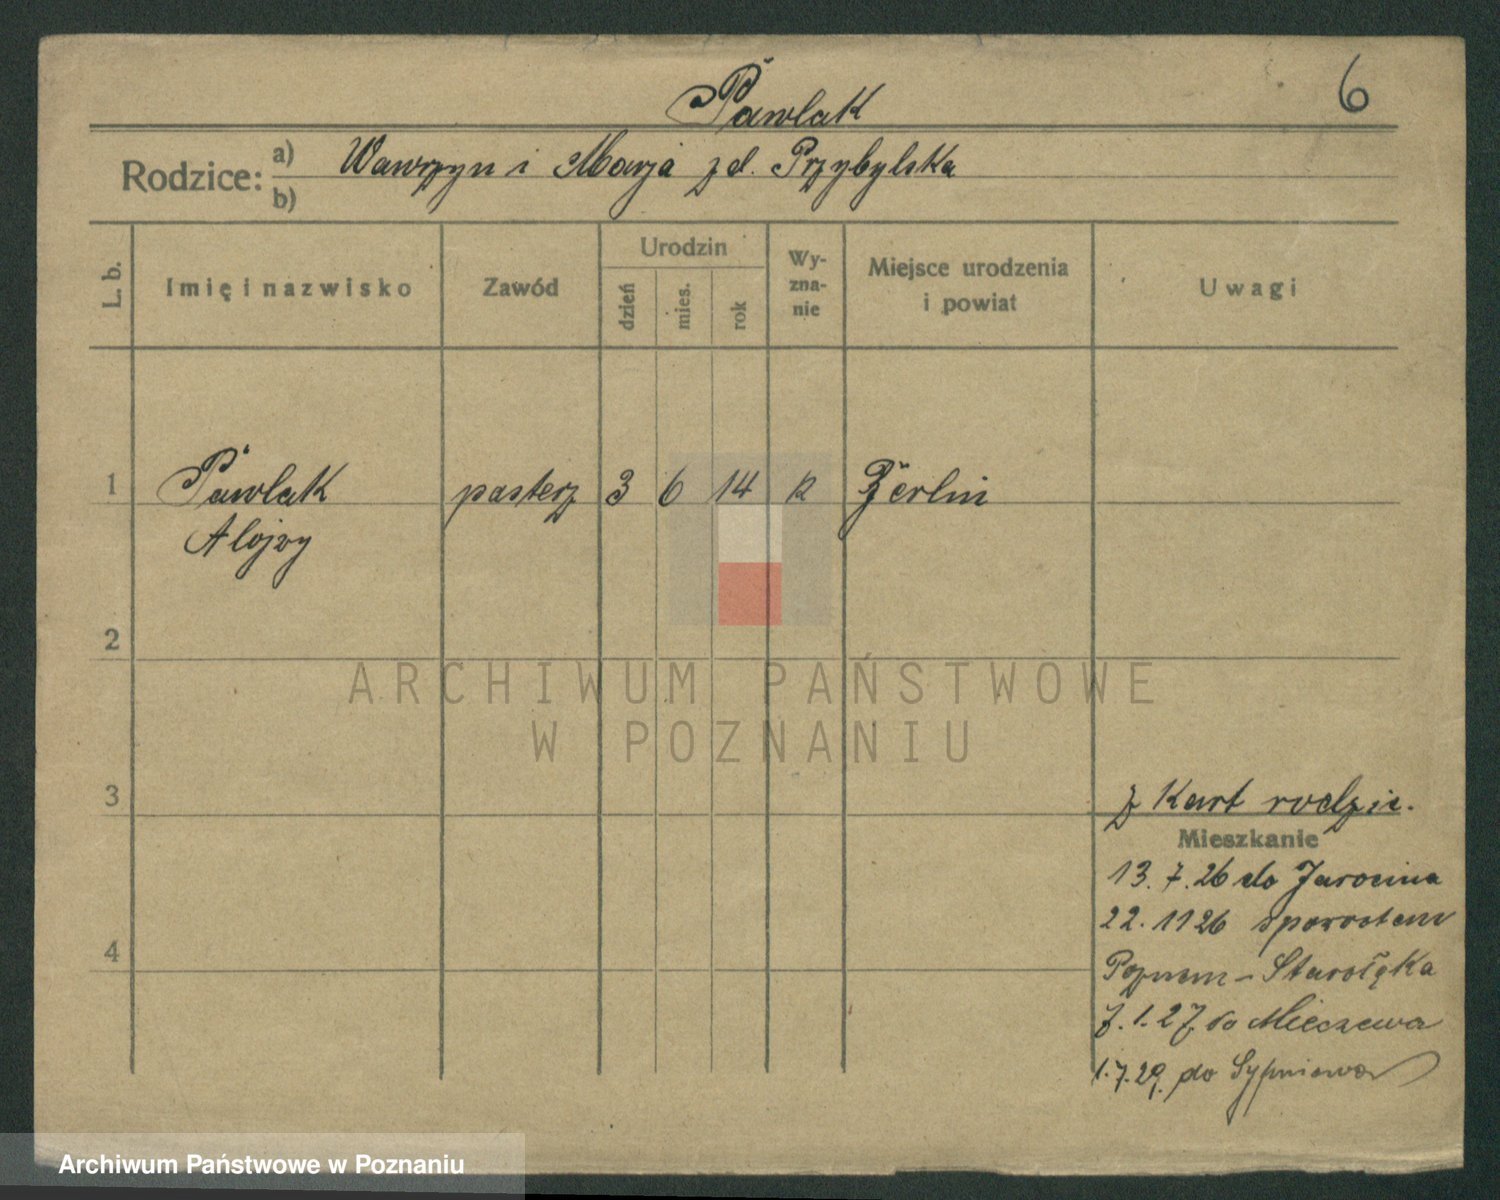 Pawlak
6
Rodzice: a) Wawrzyn i Marja zd. Przybylska
b)
L. b.
Imię i nazwisko
Zawód
Urodzin
dzień
mies.
rok
Wy-
zna-
nie
Miejsce urodzenia
i powiat
Uwagi
1 Pawlak pasterz 3 6 14 k Berlin
Alojzy
2
ARCHIWUM PAŃSTWOWE
W POZNANIU
3
z Kart rodzic.
Mieszkanie
13. 7. 26 do Jarocina
22. 11 26 spowrotem
4
Poznań - Starołęka
7. 1. 27 do Mieczewa
1. 7. 29. do Sypniewa
Archiwum Państwowe w Poznaniu